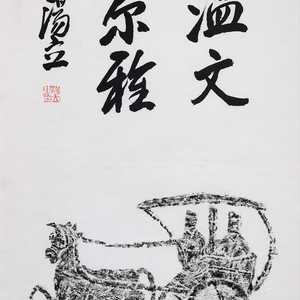 温文
尔雅